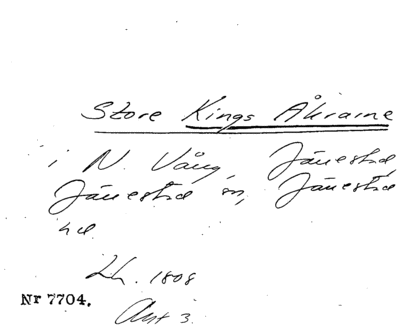 Store Kings Åkrarne
i N. Vång, Jänestad,
Jänestad sn, Jänestad
hd.
Lh. 1808
Nr 7704.
Akt 3.